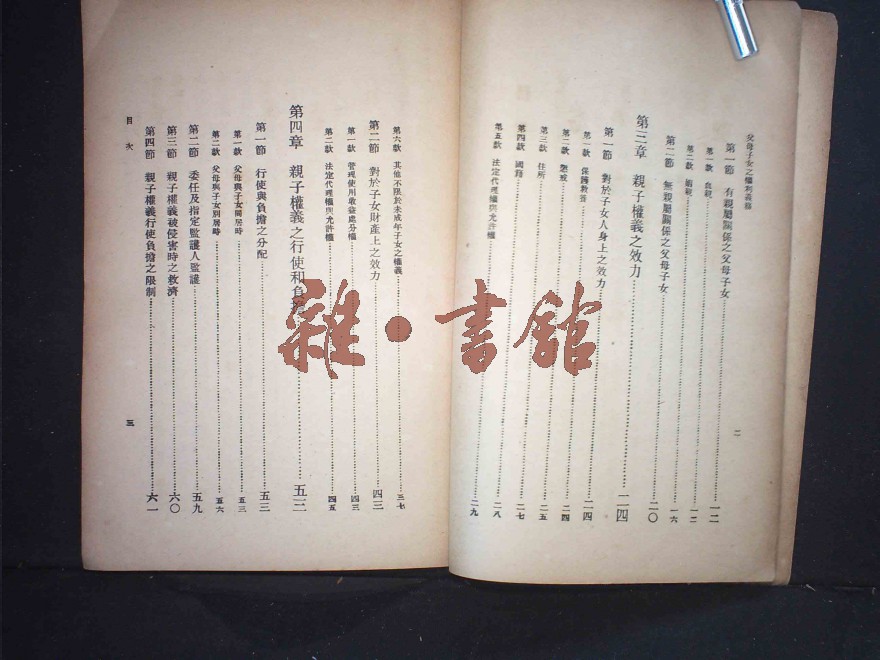 父母子女之權利義務
二
第一節 有親屬關係之父母子女 一二
第一款 血親 一二
第二款 姻親 一六
第二節 無親屬關係之父母子女 二〇
第三章 親子權義之效力 二四
第一節 對於子女人身上之效力 二四
第一款 保護教養 二四
第二款 懲戒 二四
第三款 住所 二五
第四款 國籍 二七
第五款 法定代理權與允許權 二八
二九
第六款 其他不限於未成年子女之權義 三七
第二節 對於子女財產上之效力 四三
第一款 管理使用收益處分權 四三
第二款 法定代理權與允許權 四五
第四章 親子權義之行使和負 五三
第一節 行使與負擔之分配 五三
第一款 父母與子女同居時 五三
第二款 父母與子女別居時 五六
第二節 委任及指定監護人監護 五九
第三節 親子權義被侵害時之救濟 六〇
第四節 親子權義行使負擔之限制 六一
目次
三
雜・書館